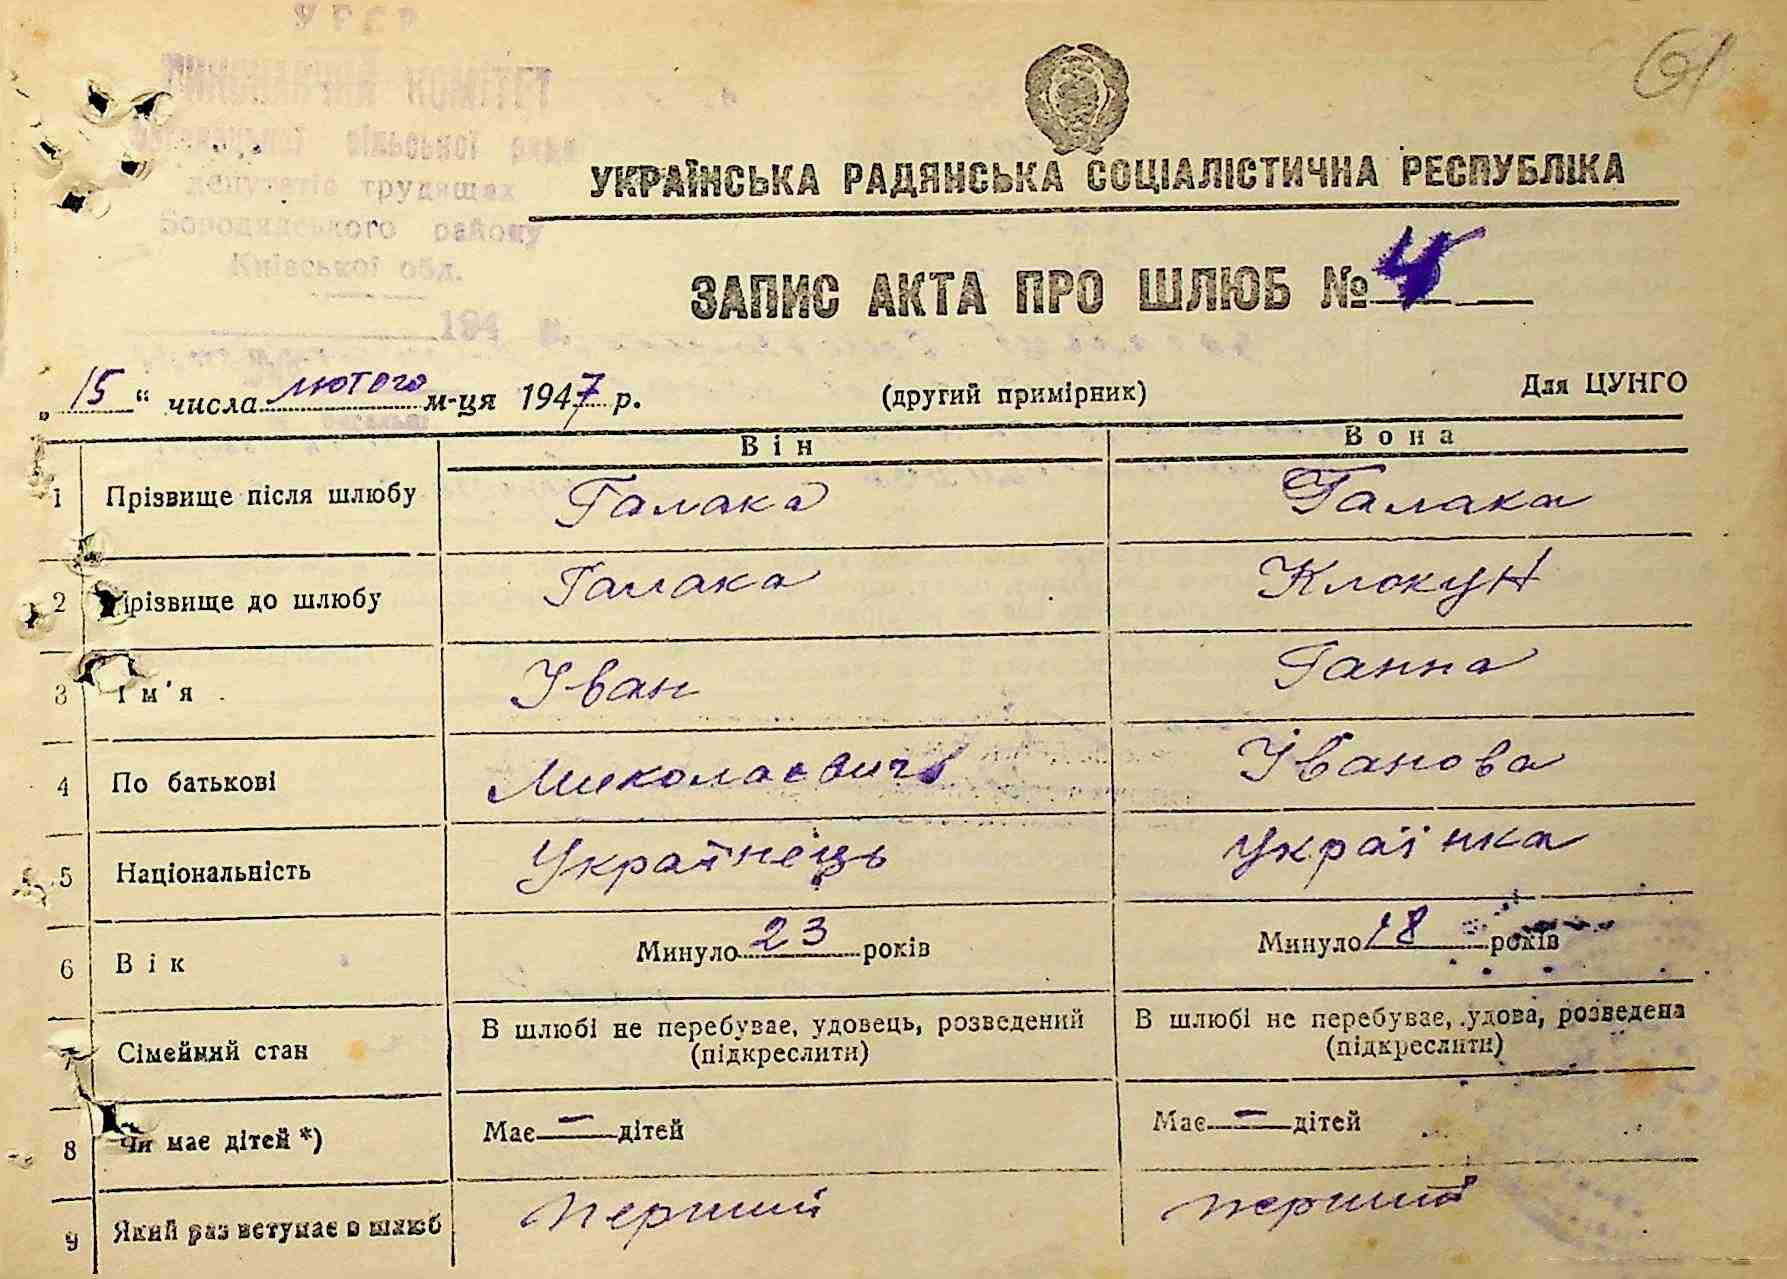 УРСР
ВИКОНАВЧИЙ КОМІТЕТ
сільської ради
депутатів трудящих
Бородянського району
Київської обл.
194 р.
61
УКРАЇНСЬКА РАДЯНСЬКА СОЦІАЛІСТИЧНА РЕСПУБЛІКА
ЗАПИС АКТА ПРО ШЛЮБ № 4
„15“ числа лютого м-ця 1947 р. (другий примірник) Для ЦУНГО
Він Вона
1 Прізвище після шлюбу Галака Галака
2 Прізвище до шлюбу Галака Клокун
3 Ім'я Іван Ганна
4 По батькові Миколаєвич Іванова
5 Національність Українець Українка
6 Вік Минуло 23 років Минуло 18 років
7 Сімейний стан В шлюбі не перебуває, удовець, розведений (підкреслити) В шлюбі не перебуває, удова, розведена (підкреслити)
8 Чи має дітей *) Має — дітей Має — дітей
9 Який раз вступає в шлюб перший перший